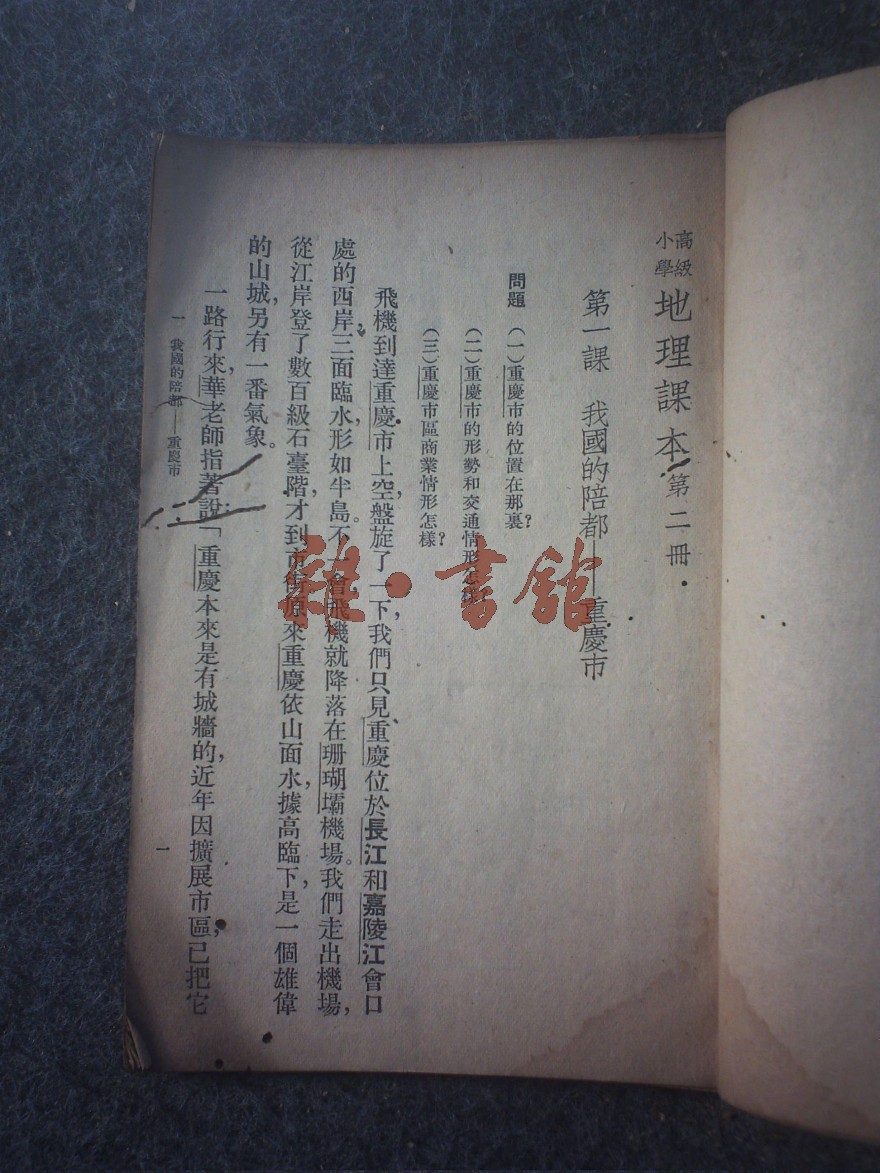 高級小學 地理課本 第二冊
第一課　我國的陪都——重慶市
問題　(一)重慶市的位置在那裏?
(二)重慶市的形勢和交通情形怎樣?
(三)重慶市區商業情形怎樣?
飛機到達重慶市上空,盤旋了一下,我們只見重慶位於長江和嘉陵江會口
處的西岸,三面臨水,形如半島。不一會,飛機就降落在珊瑚壩機場。我們走出機場,
從江岸登了數百級石臺階,才到市街。原來重慶依山面水,據高臨下,是一個雄偉
的山城,另有一番氣象。
一路行來,華老師指著說:「重慶本來是有城牆的,近年因擴展市區,已把它
一　我國的陪都——重慶市
一
雜·書館